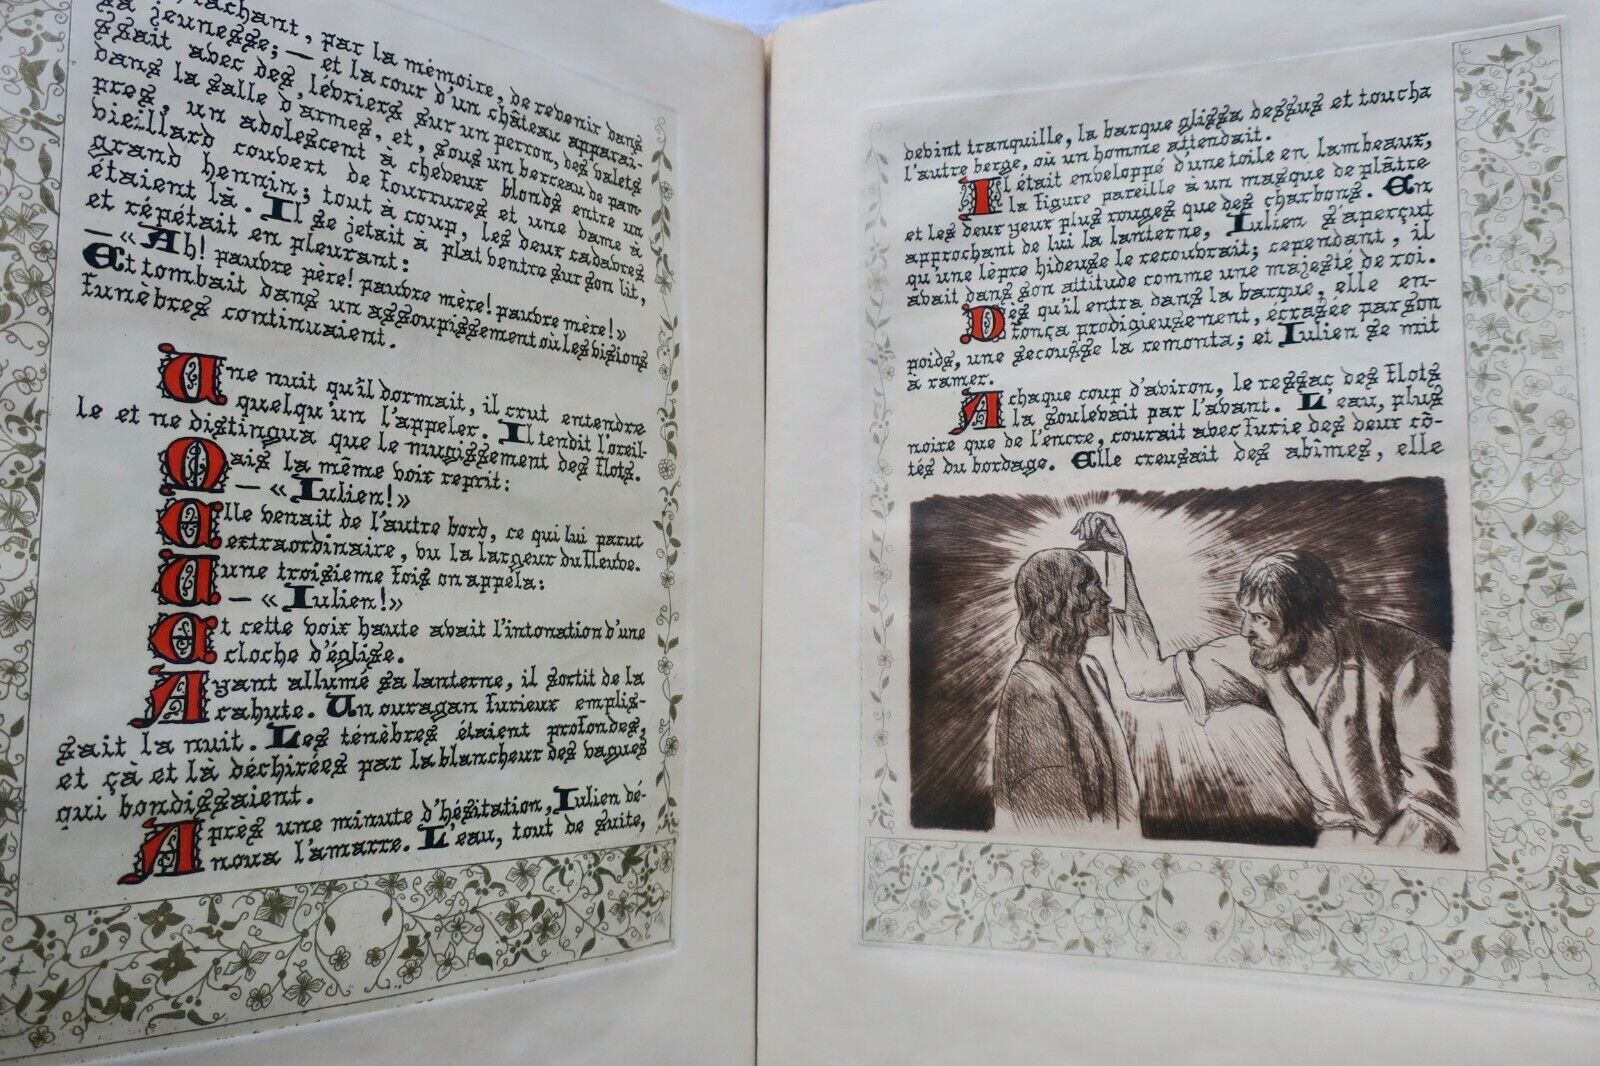 tachant, par la mémoire, de revenir dans
sa jeunesse; — et la cour d'un château apparai-
ssait avec des lévriers sur un perron, des valets
dans la salle d'armes, et, sous un berceau de pam-
pres, un adolescent à cheveux blonds entre un
vieillard couvert de fourrures et une dame à
grand hennin; tout à coup, les deux cadavres
étaient là. Il se jetait à plat ventre sur son lit,
et répétait en pleurant:
— «Ah! pauvre père! pauvre mère! pauvre mère!»
Et tombait dans un assoupissement où les visions
funèbres continuaient.
Une nuit qu'il dormait, il crut entendre
quelqu'un l'appeler. Il tendit l'oreil-
le et ne distingua que le mugissement des flots.
Mais la même voix reprit:
— «Julien!»
Elle venait de l'autre bord, ce qui lui parut
extraordinaire, vu la largeur du fleuve.
Une troisième fois on appela:
— «Julien!»
Et cette voix haute avait l'intonation d'une
cloche d'église.
Ayant allumé sa lanterne, il sortit de la
cahute. Un ouragan furieux emplis-
sait la nuit. Les ténèbres étaient profondes,
et çà et là déchirées par la blancheur des vagues
qui bondissaient.
Après une minute d'hésitation, Julien dé-
noua l'amarre. L'eau, tout de suite,
devint tranquille, la barque glissa dessus et toucha
l'autre berge, où un homme attendait.
Il était enveloppé d'une toile en lambeaux,
la figure pareille a un masque de plâtre
et les deux yeux plus rouges que des charbons. En
approchant de lui la lanterne, Julien s'aperçut
qu'une lèpre hideuse le recouvrait; cependant, il
avait dans son attitude comme une majesté de roi.
Dès qu'il entra dans la barque, elle en-
fonça prodigieusement, écrasée par son
poids, une secousse la remonta; et Julien se mit
à ramer.
A chaque coup d'aviron, le ressac des flots
la soulevait par l'avant. L'eau, plus
noire que de l'encre, courait avec furie des deux cô-
tés du bordage. Elle creusait des abîmes, elle